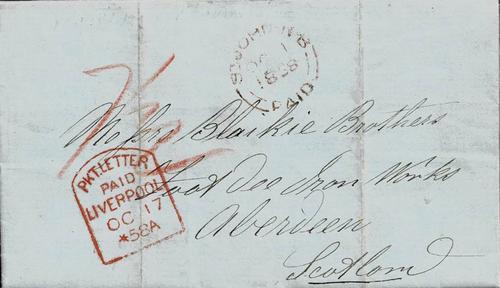 ST JOHN N.B
OC 1
1858
PAID
Messrs Blaikie Brothers
Foot Dee Iron Works
Aberdeen
Scotland
PKT. LETTER
PAID
LIVERPOOL
OC 17
*58A